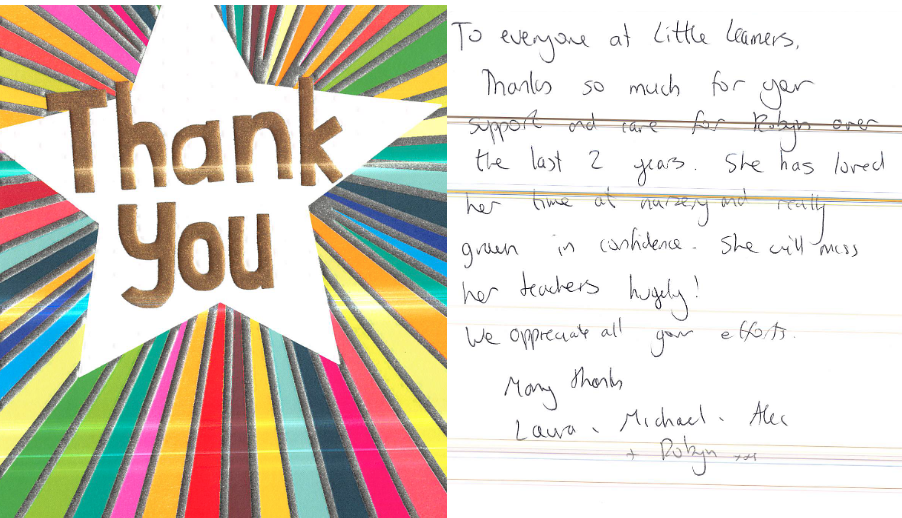 Thank
You
To everyone at Little Learners,
Thanks so much for your
support and care for Robyn over
the last 2 years. She has loved
her time at nursery and really
grown in confidence. She will miss
her teachers hugely!
We appreciate all your efforts.
Many thanks
Laura, Michael, Alec
+ Robyn xxx